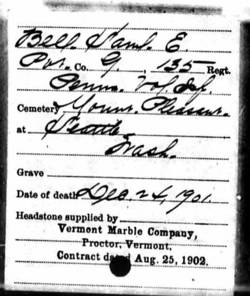 Bell, Saml. E.
Pvt. Co. G, 135 Regt.
Penna. Vol. Inf.
Cemetery Mount Pleasant
at Seattle
Wash.
Grave
Date of death Dec. 24, 1901.
Headstone supplied by
Vermont Marble Company,
Proctor, Vermont,
Contract dated Aug. 25, 1902.